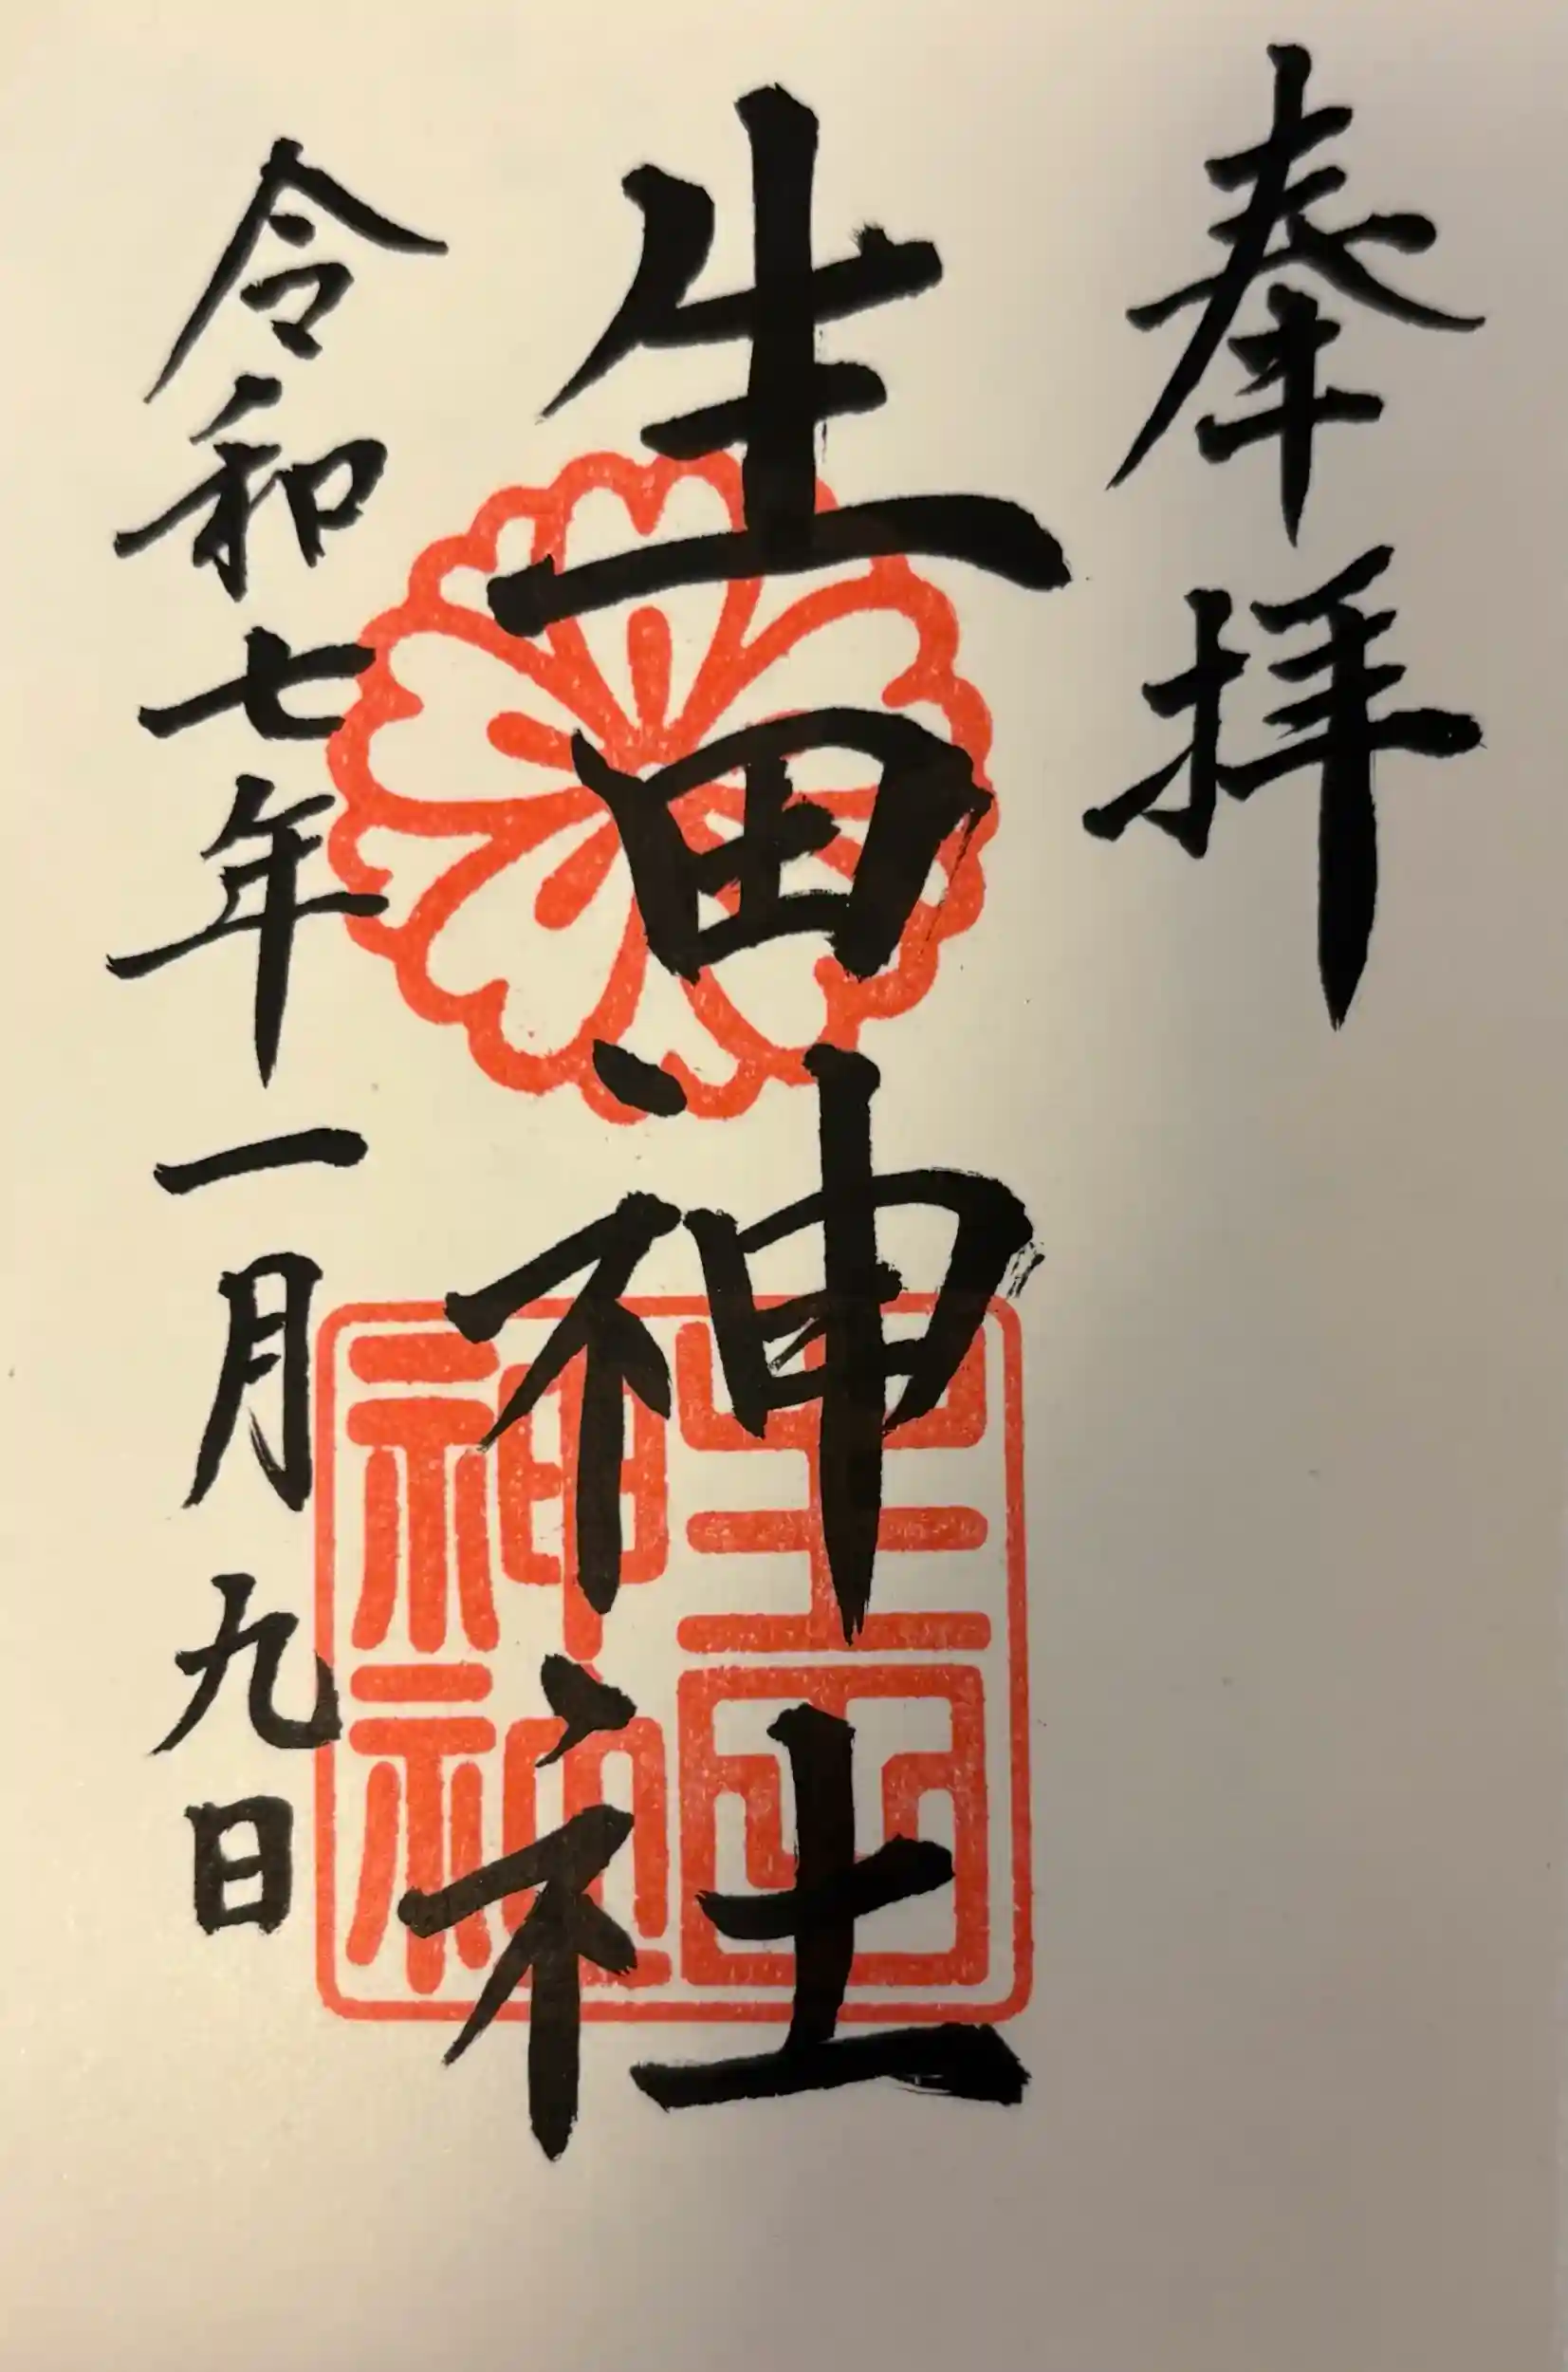 奉拝
生田神社
生田神社
令和七年一月九日